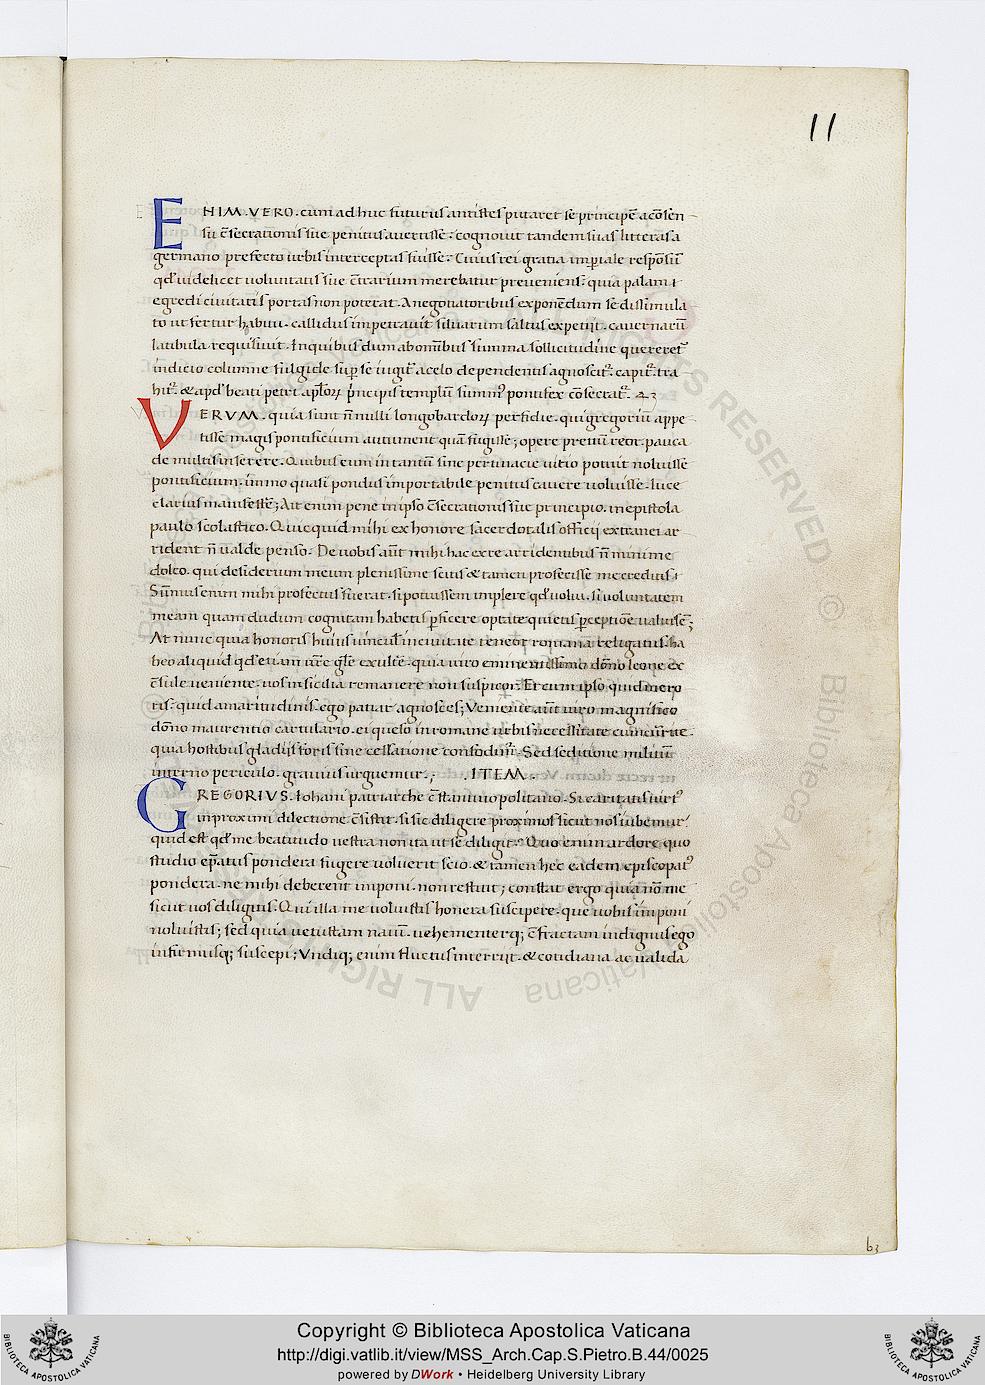 11
EHIM. VERO. cum ad huc futurus antistes putaret se principē a cōsen-
su c̄secrationis sue penitus auertisse. cognouit tandem suas litteras a
germano prefecto urbis interceptas fuisse. Cuius rei gratia imperiale respōsū
qd̄ uidelicet uoluntatis sue c̄trarium merebatur preueniens. quia palam
egredi ciuitatis portas non poterat. A negotiatoribus exponendum se dissimula
to ut fertur habitu. callidus impetrauit. siluarum saltus expetiit. cauernarū
latibula requisiuit. In quibus dum ab omnibus summa sollicitudine quereret̄
indicio columne fulgide sup̄ se iugit̄ a celo dependentis agnoscit̄. capit̄. tra
hit̄. & apd̄ beati petri apl̄oꝝ principis templū summꝰ pontifex cōsecrat̄.
VERVM. quia sunt n̄nulli longobardoꝝ perfidie. qui gregoriū appe-
tisse magis pontificium autument quā fugisse; opere preciū reor. pauca
de multis inserere. Quibus eum in tantū sine pertinacie uitio potuit noluisse
pontificium. immo quasi pondus importabile penitus cauere uoluisse. luce
clarius manifestē; Ait enim pene in ipso c̄secrationis sue principio. in epistola
paulo scolastico. Quicquid mihi ex honore sacerdotalis officij extranei ar
rident n̄ ualde penso. De uobis aūt mihi hac ex re arridentibus n̄ minime
doleo. qui desiderium meum plenissime scitis & tamen profecisse me creditis
Sūmus enim mihi profectus fuerat. si potuissem implere qd̄ uolui. si uoluntatem
meam quam dudum cognitam habetis p̄ficere optate quietis p̄ceptiōe ualuisē;
At nunc quia honoris huius uinculis in ciuitate teneor romana religatus. ha
beo aliquid qd̄ etiam uēre gl̄e exultē. quia uiro eminentissimo dōno leone ex
c̄sule ueniente. uos in sicilia remanere non suspicor. Et cum ipso quid mero
ris. quid amaritudinis. ego patiar agnosces; Veniente aūt uiro magnifico
dōno maurentio cartulario. ei queso in romane urbis necessitate concurrite.
quia hostibus gladijs foris sine cessatione confodimr̄. Sed seditione militū
interno periculo. grauius urguemur; ITEM.
GREGORIVS. Iohani patriarche c̄stantinopolitano. Si caritatis uirtꝰ
in proximi dilectione c̄sistit. si sic diligere proximos sicut nos iubemur.
quid est qd̄ me beatitudo uestra non ita ut se diligit. Quo enim ardore quo
studio ep̄atus pondera fugere uoluerit scio. & tamen hec eadem episcopatꝰ
pondera. ne mihi deberent imponi. non restitit; constat ergo quia nō me
sicut uos diligitis. Qui illa me uoluistis honera suscipere. que uobis imponi
noluistis; sed quia uetustam nauī. uehementerq; c̄fractam indignus ego
infirmusq; suscepi; Vndiq; enim fluctus interrijt. & cotidiana ac ualida
b3
Copyright © Biblioteca Apostolica Vaticana
http://digi.vatlib.it/view/MSS_Arch.Cap.S.Pietro.B.44/0025
powered by DWork • Heidelberg University Library